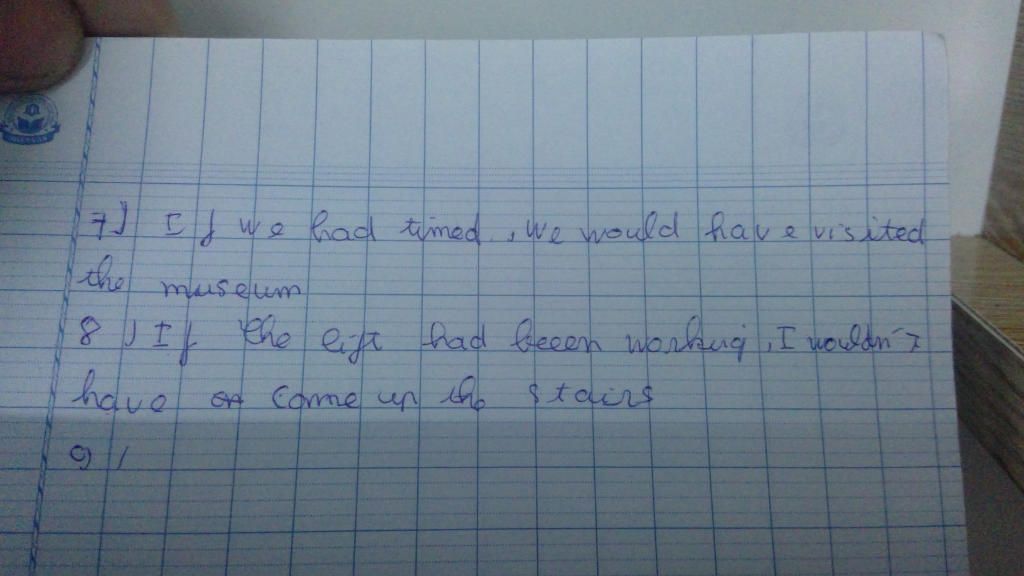 7) If we had timed, we would have visited
the museum
8) If the lift had beeen working, I wouldn't
have come up the stairs
9)